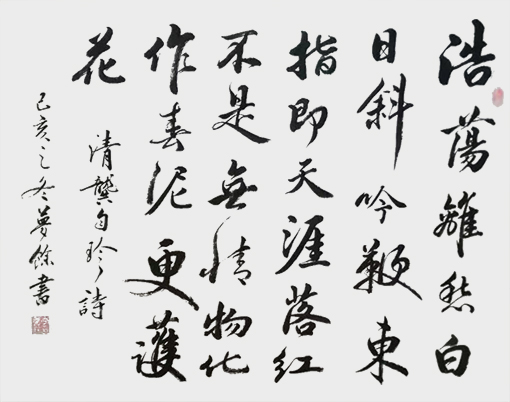 浩蕩離愁白
日斜吟鞭東
指即天涯落紅
不是無情物化
作春泥更護
花
清龔自珍詩
己亥之冬夢餘書